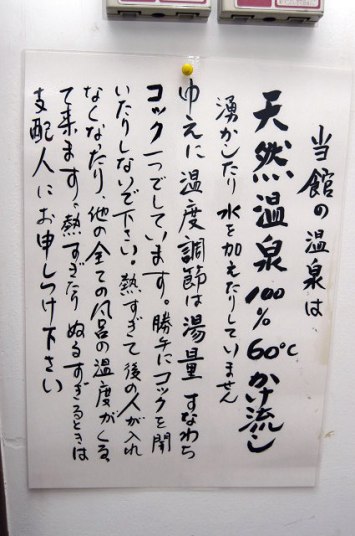 当館の温泉は
天然温泉100% 60℃ かけ流し
湧かしたり水を加えたりしていません
ゆえに温度調節は湯量すなわち
コック一つでしています。勝手にコックを開
いたりしないで下さい。熱すぎて後の人が入れ
なくなったり、他の全ての風呂の温度がくる、
て来ます。熱すぎたりぬるすぎるときは
支配人にお申しつけ下さい